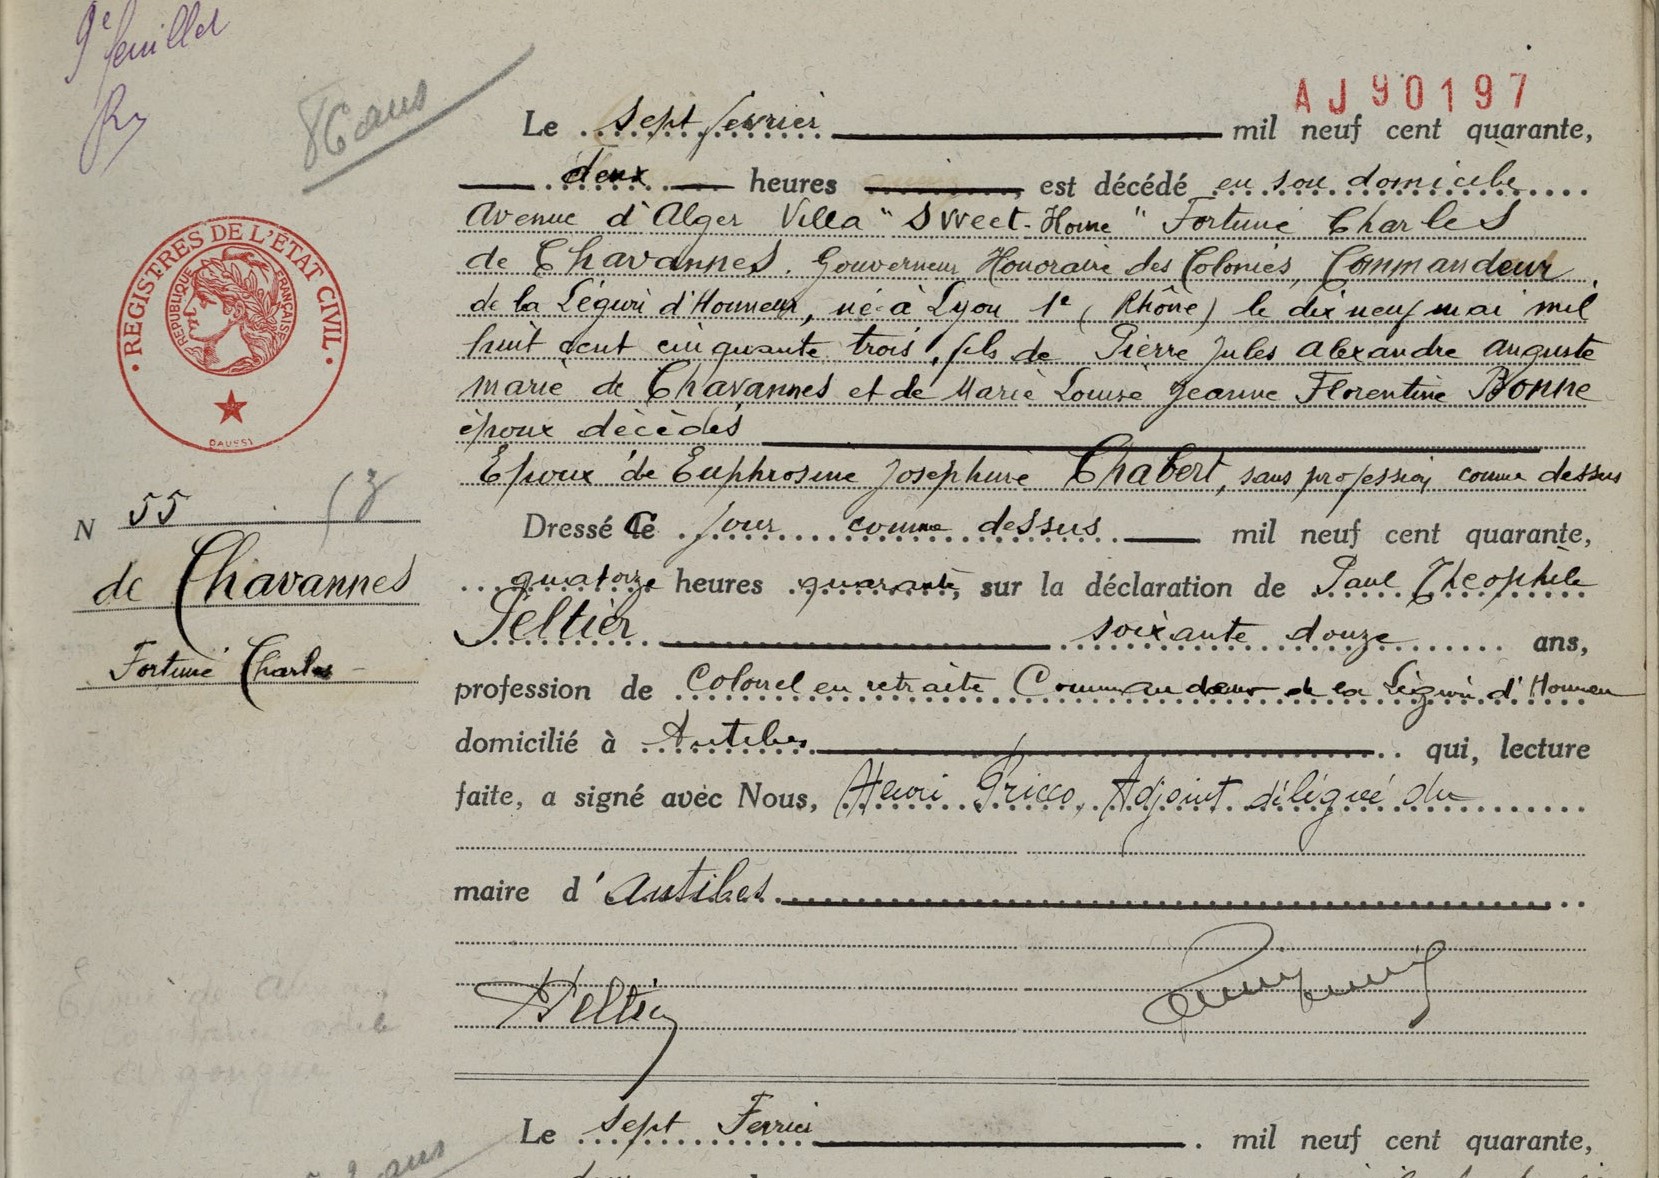 9e feuillet
86 ans
AJ90197
Le sept fevrier mil neuf cent quarante,
deux heures est décédé en son domicile
Avenue d'Alger Villa "Sweet-Home" Fortuné Charles
de Chavannes, Gouverneur Honoraire des Colonies, Commandeur
de la Légion d'Honneur, né à Lyon 1e (Rhône) le dix neuf mai mil
huit cent cinquante trois, fils de Pierre Jules Alexandre Auguste
Marie de Chavannes et de Marie Louise Jeanne Florentine Bonne
époux décédés
Epoux de Euphrosine Josephine Chabert, sans profession comme dessus
REGISTRES DE L'ÉTAT CIVIL
RÉPUBLIQUE FRANÇAISE
DAUSSY
N 55
de Chavannes
Fortuné Charles
Dressé Ce jour comme dessus mil neuf cent quarante,
quatorze heures quarante, sur la déclaration de Paul Théophile
Peltier soixante douze ans,
profession de Colonel en retraite Commandeur de la Légion d'Honneur
domicilié à Antibes qui, lecture
faite, a signé avec Nous, Henri Pricco, Adjoint délégué du
maire d'Antibes
Peltier
Epoux de
Le sept Fevrier mil neuf cent quarante,
ans